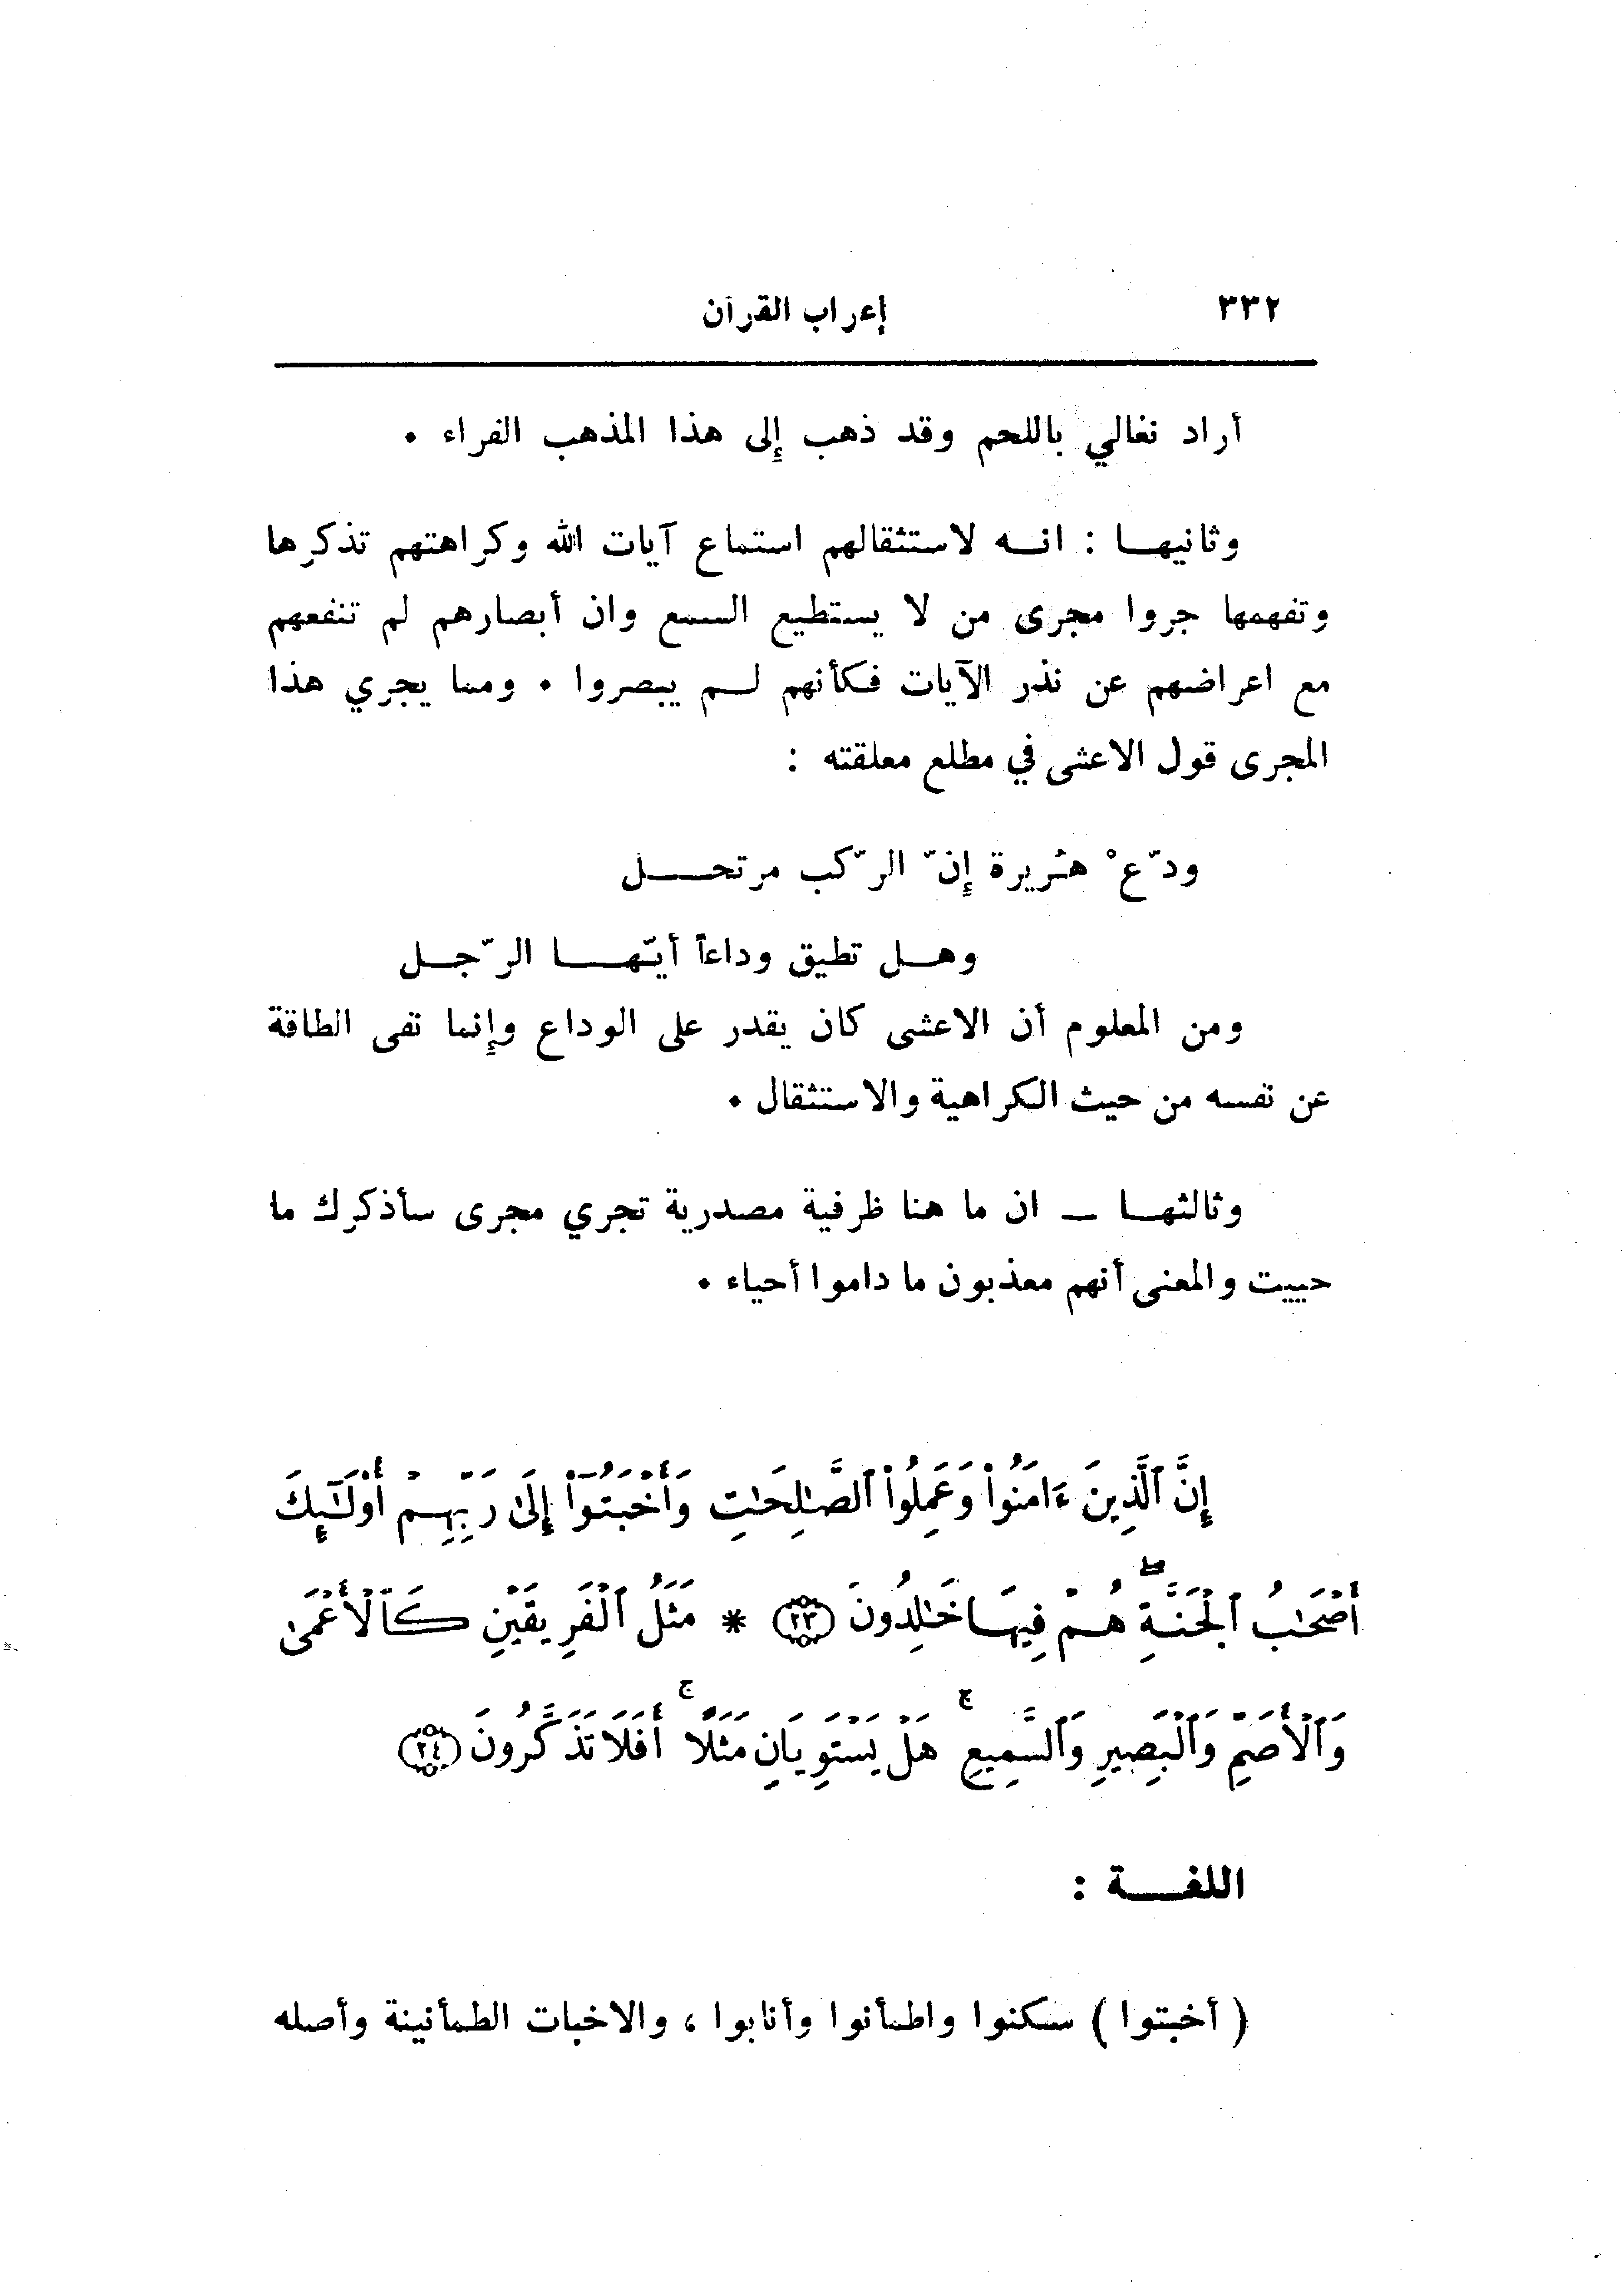 ٣٣٢ إعراب القرآن
أراد نغالي باللحم وقد ذهب إلى هذا المذهب الفراء .
وثانيهـا : انـه لاستثقالهم استماع آيات الله وكراهتهم تذكرها
وتفهمها جروا مجرى من لا يستطيع السمع وان أبصارهم لم تنفعهم
مع اعراضهم عن نذر الآيات فكأنهم لـم يبصروا . ومما يجري هذا
المجرى قول الاعشى في مطلع معلقته :
ودّعْ هُريرة إنّ الرّكب مرتحـل
وهـل تطيق وداعاً أيّهـا الرّجـل
ومن المعلوم أن الاعشى كان يقدر على الوداع وإنما نفى الطاقة
عن نفسه من حيث الكراهية والاستثقال .
وثالثهـا ــ ان ما هنا ظرفية مصدرية تجري مجرى سأذكرك ما
حييت والمعنى أنهم معذبون ما داموا أحياء .
إِنَّ ٱلَّذِينَ ءَامَنُوا۟ وَعَمِلُوا۟ ٱلصَّـٰلِحَـٰتِ وَأَخْبَتُوٓا۟ إِلَىٰ رَبِّهِمْ أُو۟لَـٰٓئِكَ
أَصْحَـٰبُ ٱلْجَنَّةِ ۖ هُمْ فِيهَا خَـٰلِدُونَ ﴿٢٣﴾ * مَثَلُ ٱلْفَرِيقَيْنِ كَٱلْأَعْمَىٰ
وَٱلْأَصَمِّ وَٱلْبَصِيرِ وَٱلسَّمِيعِ ۚ هَلْ يَسْتَوِيَانِ مَثَلًا ۚ أَفَلَا تَذَكَّرُونَ ﴿٢٤﴾
اللغـة :
( أخبتوا ) سكنوا واطمأنوا وأنابوا ، والاخبات الطمأنينة وأصله